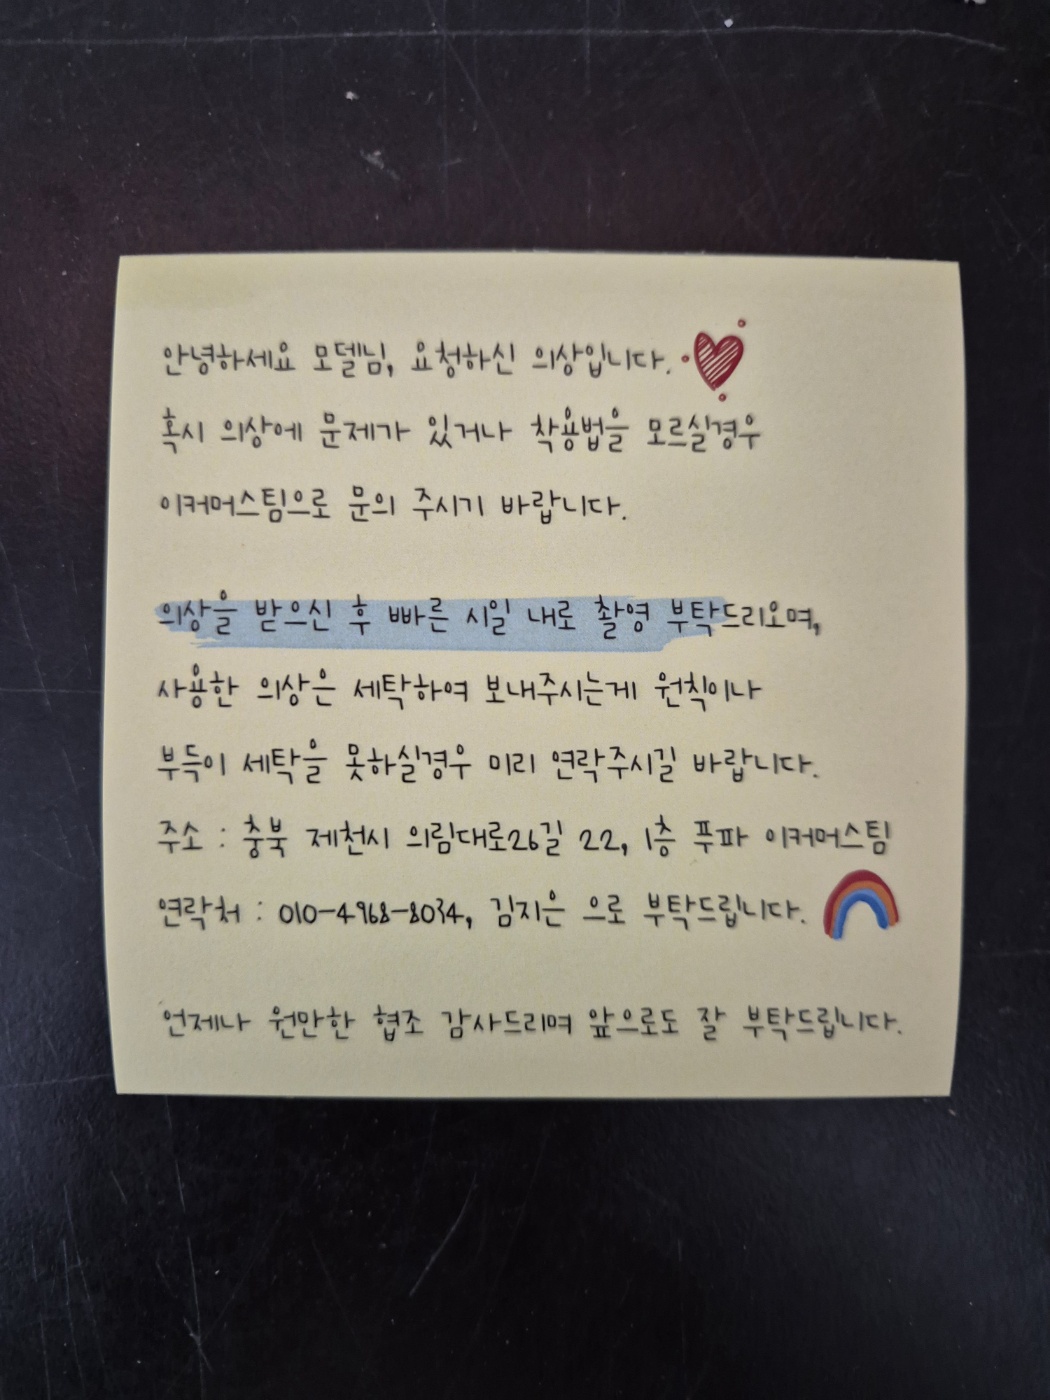 안녕하세요 모델님, 요청하신 의상입니다.
혹시 의상에 문제가 있거나 착용법을 모르실경우
이커머스팀으로 문의 주시기 바랍니다.
의상을 받으신 후 빠른 시일 내로 촬영 부탁드리오며,
사용한 의상은 세탁하여 보내주시는게 원칙이나
부득이 세탁을 못하실경우 미리 연락주시길 바랍니다.
주소 : 충북 제천시 의림대로26길 22, 1층 푸파 이커머스팀
연락처 : 010-4968-8034, 김지은 으로 부탁드립니다.
언제나 원만한 협조 감사드리며 앞으로도 잘 부탁드립니다.